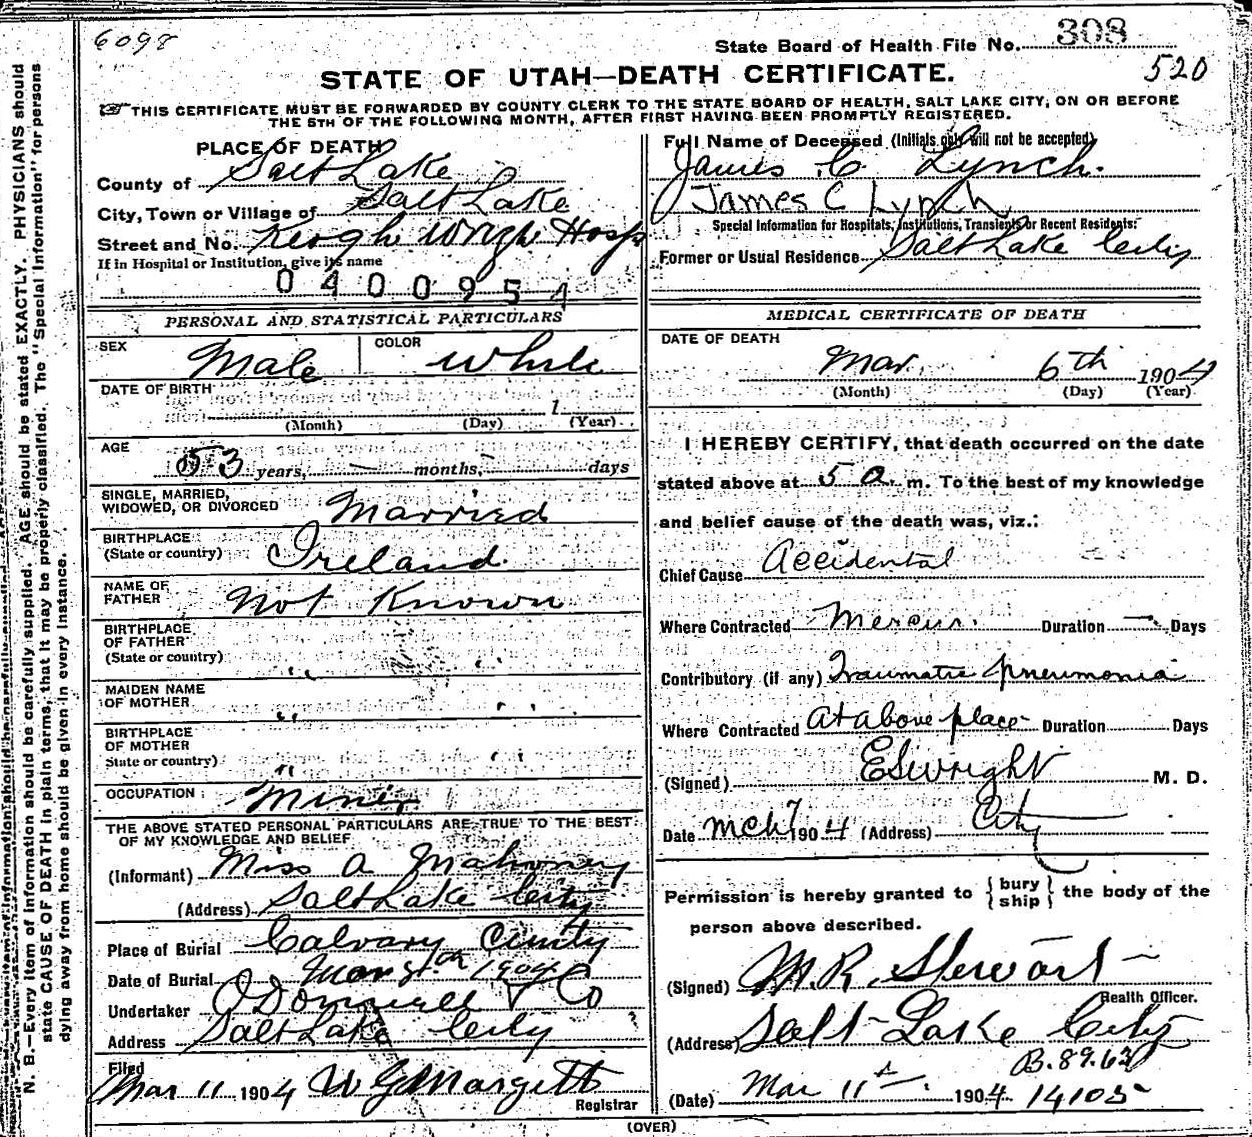 6098
State Board of Health File No. 308
520
STATE OF UTAH—DEATH CERTIFICATE.
☞ THIS CERTIFICATE MUST BE FORWARDED BY COUNTY CLERK TO THE STATE BOARD OF HEALTH, SALT LAKE CITY, ON OR BEFORE
THE 5TH OF THE FOLLOWING MONTH, AFTER FIRST HAVING BEEN PROMPTLY REGISTERED.
N. B.—Every item of information should be carefully supplied. AGE should be stated EXACTLY. PHYSICIANS should
state CAUSE OF DEATH in plain terms, that it may be properly classified. The "Special Information" for persons
dying away from home should be given in every instance.
PLACE OF DEATH
County of Salt Lake
City, Town or Village of Salt Lake
Street and No. Keogh Wright Hosp
If in Hospital or Institution, give its name
0400954
PERSONAL AND STATISTICAL PARTICULARS
SEX Male COLOR White
DATE OF BIRTH
1
(Month) (Day) (Year)
AGE
53 years, — months, — days
SINGLE, MARRIED,
WIDOWED, OR DIVORCED Married
BIRTHPLACE
(State or country) Ireland
NAME OF
FATHER Not Known
BIRTHPLACE
OF FATHER
(State or country) " "
MAIDEN NAME
OF MOTHER " "
BIRTHPLACE
OF MOTHER
State or country) " "
OCCUPATION Miner
THE ABOVE STATED PERSONAL PARTICULARS ARE TRUE TO THE BEST
OF MY KNOWLEDGE AND BELIEF
(Informant) Miss A Mahoney
(Address) Salt Lake City
Place of Burial Calvary
Date of Burial Mar 1904
Undertaker O'Donnell & Co
Address Salt Lake City
Filed
Mar 11 1904 W G Margetts
Registrar
Full Name of Deceased (Initials only will not be accepted)
James C Lynch.
James C Lynch
Special Information for Hospitals, Institutions, Transients or Recent Residents:
Former or Usual Residence Salt Lake City
MEDICAL CERTIFICATE OF DEATH
DATE OF DEATH
Mar. 6th 1904
(Month) (Day) (Year)
I HEREBY CERTIFY, that death occurred on the date
stated above at 5 a. m. To the best of my knowledge
and belief cause of the death was, viz.:
Chief Cause Accidental
Where Contracted Mercur. Duration — Days
Contributory (if any) Traumatic pneumonia
Where Contracted At above place Duration Days
(Signed) E S Wright M. D.
Date Mch 7 1904 (Address) City
Permission is hereby granted to { bury ship } the body of the
person above described.
(Signed) M. R. Stewart
Health Officer.
(Address) Salt Lake City
B. 89.63
(Date) Mar 11th 1904 14105
(OVER)